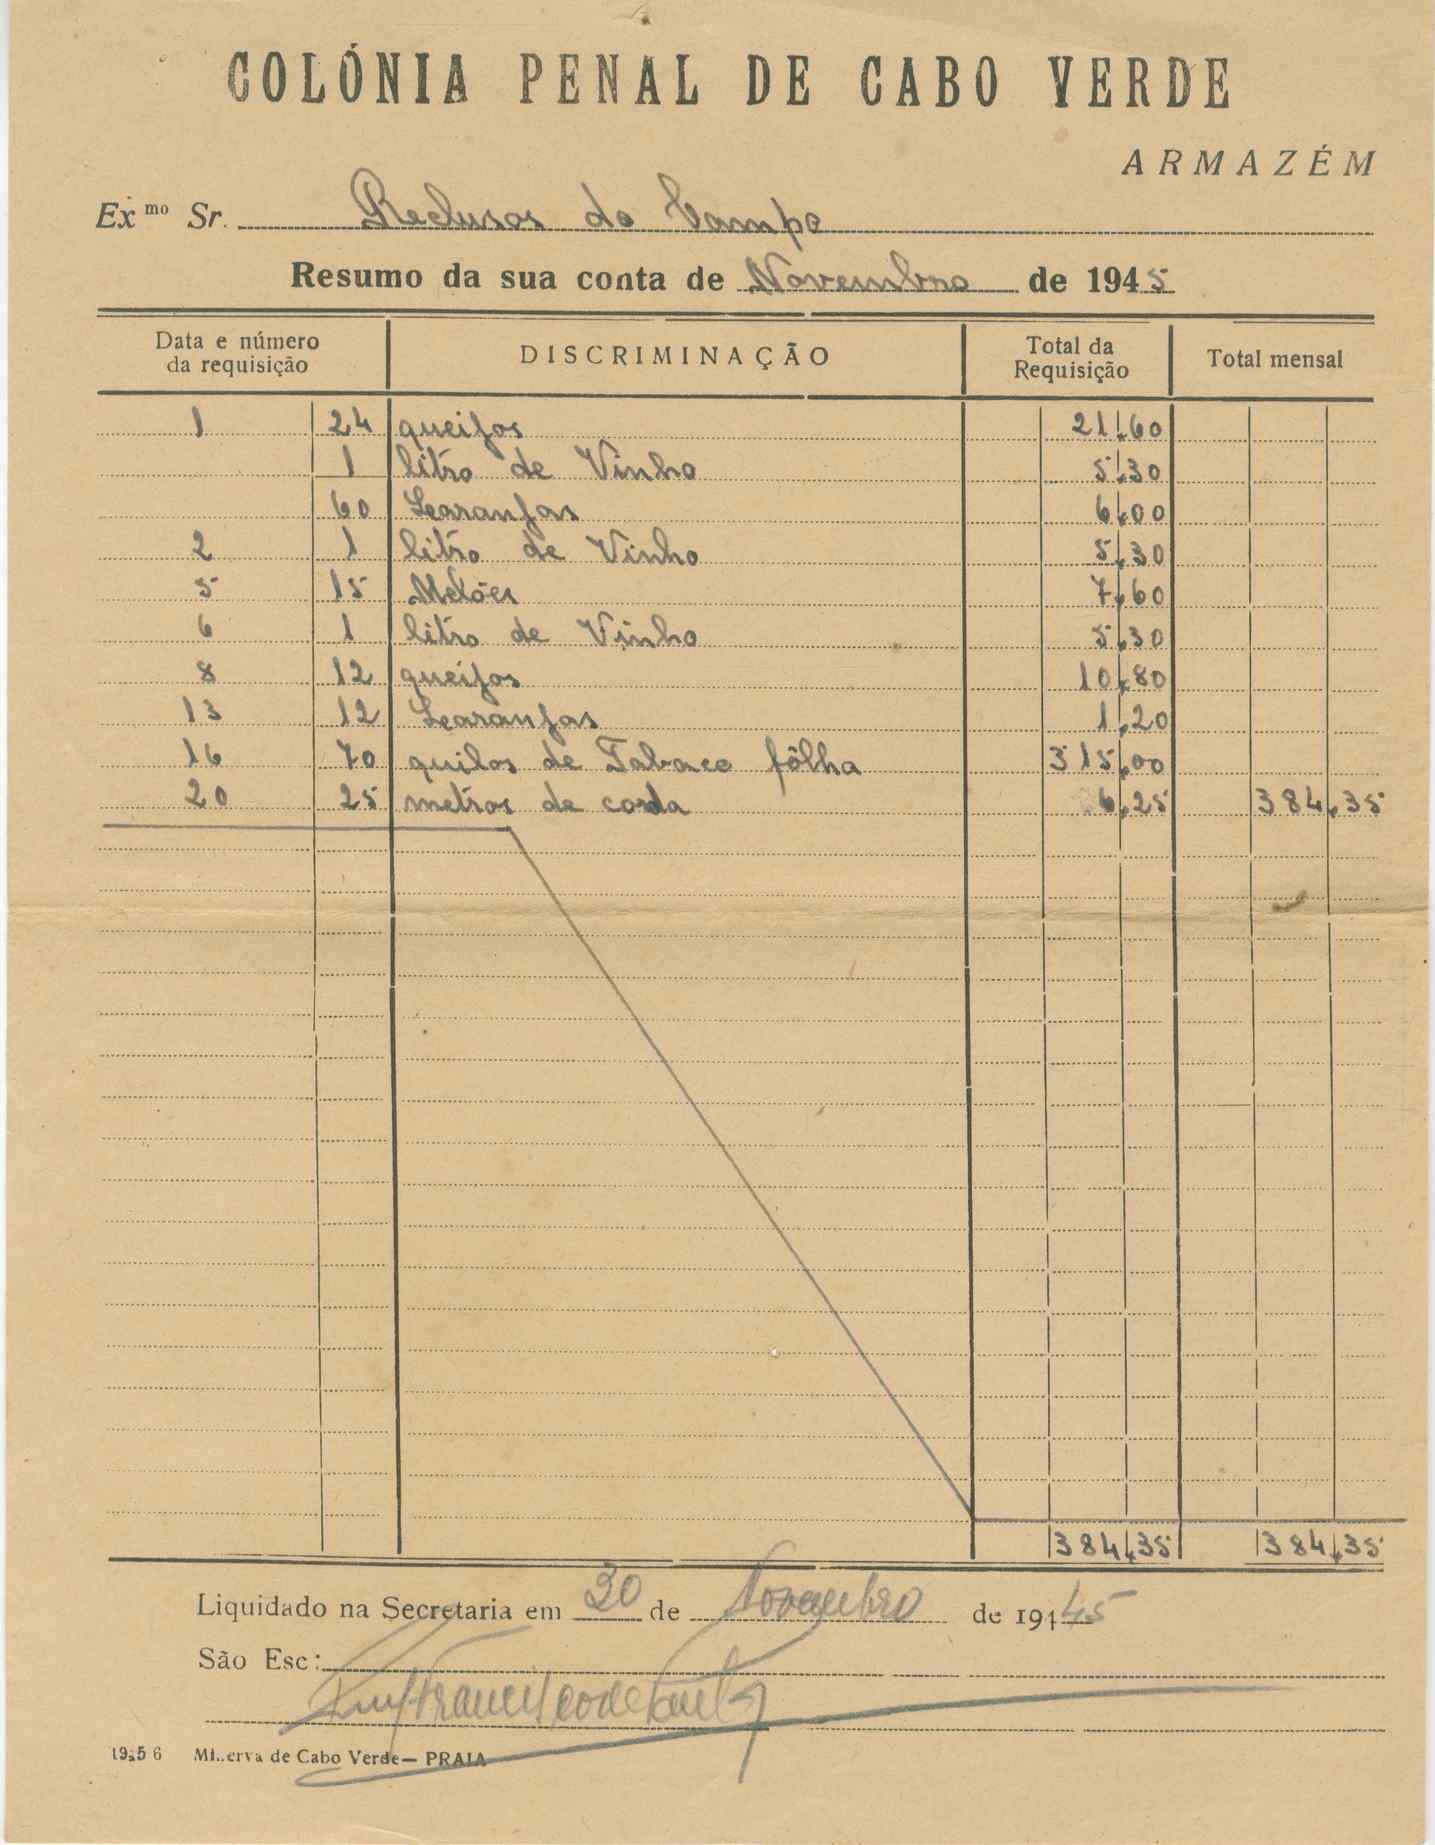 COLÓNIA PENAL DE CABO VERDE
ARMAZÉM
Exmo Sr. Reclusos do Campo
Resumo da sua conta de Novembro de 1945
Data e número da requisição DISCRIMINAÇÃO Total da Requisição Total mensal
1 24 queijos 21,60
1 litro de Vinho 5,30
60 Laranjas 6,00
2 1 litro de Vinho 5,30
5 15 Melões 7,60
6 1 litro de Vinho 5,30
8 12 queijos 10,80
13 12 Laranjas 1,20
16 70 quilos de Tabaco fôlha 315,00
20 25 metros de corda 6,25 384,35
384,35 384,35
Liquidado na Secretaria em 30 de Novembro de 194 45
São Esc:
Francisco de
Minerva de Cabo Verde — PRAIA